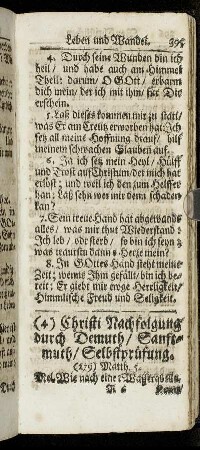 Leben und Wandel. 395
4. Durch seine Wunden bin ich
heil/ und habe auch am Himmel
Theil: darum/ O GOtt/ erbarm
dich mein/ der ich mit ihm für Dir
erschein.
5. Laß dieses kommen mir zu statt/
was Er am Creutz erworben hat: Ich
setz all meine Hoffnung drauf/ hilf
meinem schwachen Glauben auf.
6. Ja ich setz mein Heyl/ Hülff
und Trost auf Christum/ der mich hat
erlößt; und weil ich den zum Helffer
han; Laß sehn wer mir dann schaden
kan?
7. Sein treue Hand hat abgewandt
alles/ was mir thut Widerstand:
Ich leb/ odr sterb/ so bin ich seyn
was traurst dann O Hertze mein?
8. In GOttes Hand steht meine
Zeit; wenns Ihm gefällt/ bin ich be-
reit; Er giebt mir ewge Herrligkeit/
Himmlische Freud und Seligkeit.
(4) Christi Nachfolgung
durch Demuth/ Sanft-
muth/ Selbstprüfung.
(279) Matth. 5.
Mel. Wie nach einer Wasserquelle.
R 6